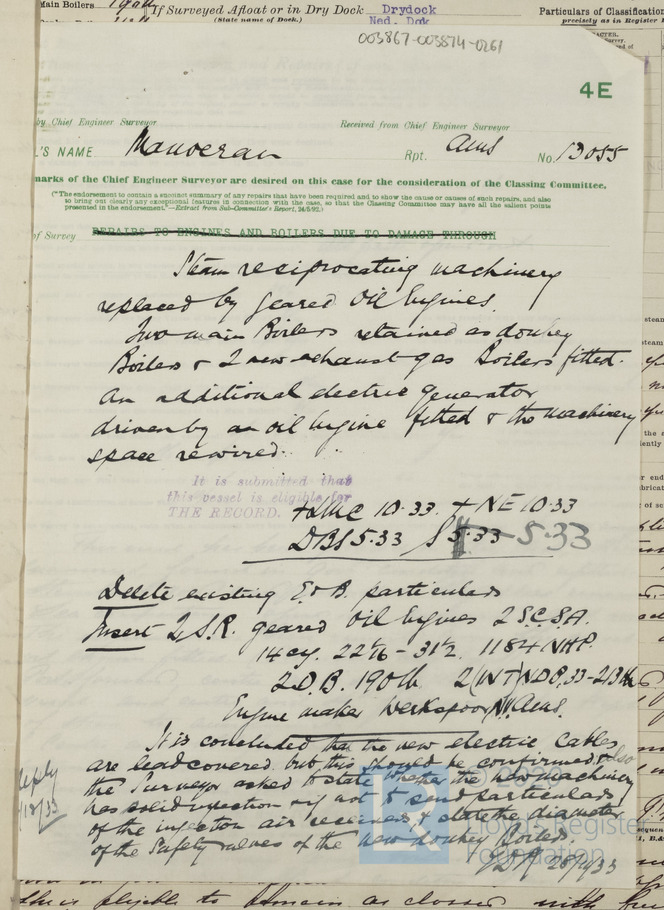 Main Boilers
If Surveyed Afloat or in Dry Dock Drydock
(State name of Dock.) Ned. Dok
Particulars of Classification
precisely as in Register
003867-003874-0261
4E
by Chief Engineer Surveyor Received from Chief Engineer Surveyor
L'S NAME Manoeran Rpt. Ams No. 13055
marks of the Chief Engineer Surveyor are desired on this case for the consideration of the Classing Committee.
("The endorsement to contain a succinct summary of any repairs that have been required and to show the cause or causes of such repairs, and also
to bring out clearly any exceptional features in connection with the case, so that the Classing Committee may have all the salient points
presented in the endorsement."—Extract from Sub-Committee's Report, 24/5/92.)
of Survey REPAIRS TO ENGINES AND BOILERS DUE TO DAMAGE THROUGH
Steam reciprocating machinery
replaced by geared Oil Engines.
Two main Boilers retained as donkey
Boilers & 2 new exhaust gas Boilers fitted.
An additional electric generator
driven by an oil engine fitted & the machinery
space rewired.
It is submitted that
this vessel is eligible for
THE RECORD. +LMC 10.33. + NE 10.33
DBS 5.33 S 5.33 - 5.33
Delete existing E & B. particulars
Insert 2, S.R. geared Oil Engines 2 S.C.S.A.
14 cy. 22 7/16 - 31 1/2. 1184 NHP.
2 D.B. 190 lb
Engine maker Werkspoor NV. Ams.
It is concluded that the new electric cables
are lead covered. but this should be confirmed & also
the Surveyor asked to state whether the new machinery
has solid injection & if not to send particulars
of the injection air receivers & state the diameter
of the Safety valves of the new donkey Boilers
Reply
/12/33
Lloyd's Register
Foundation